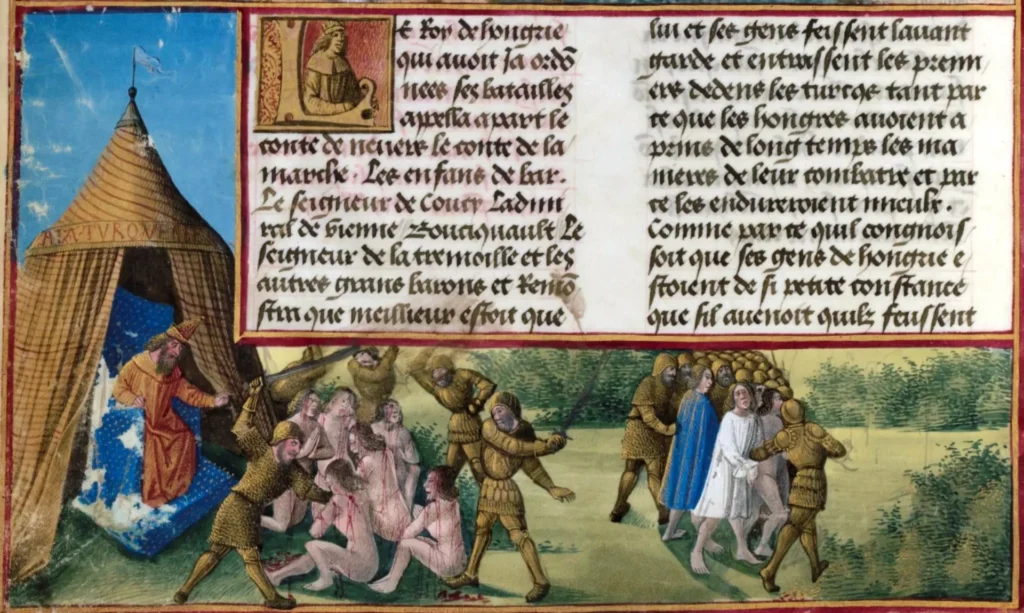 Le Roy de hongrie
qui auoit ja ordõ
nees ses batailles
apella a part le
conte de neuers le conte de la
marche. Les enfans de bar.
Le seigneur de Coucy Ladmi
ral de vienne Bouciquault Le
seigneur de la tremoille et les
autres grans barons et Remõ
stra que meillieur estoit que
lui et ses gens feissent lauant
garde et entrassent les premi
ers dedens les turcqs tant par
ce que les hongres auoient a
prins de long temps les ma
nieres de leur combatre et par
ce les endureroient mieulx.
Comme par ce quil congnois
soit que ses gens de hongrie e
stoient de si petite constance
que sil auenoit quilz feussent